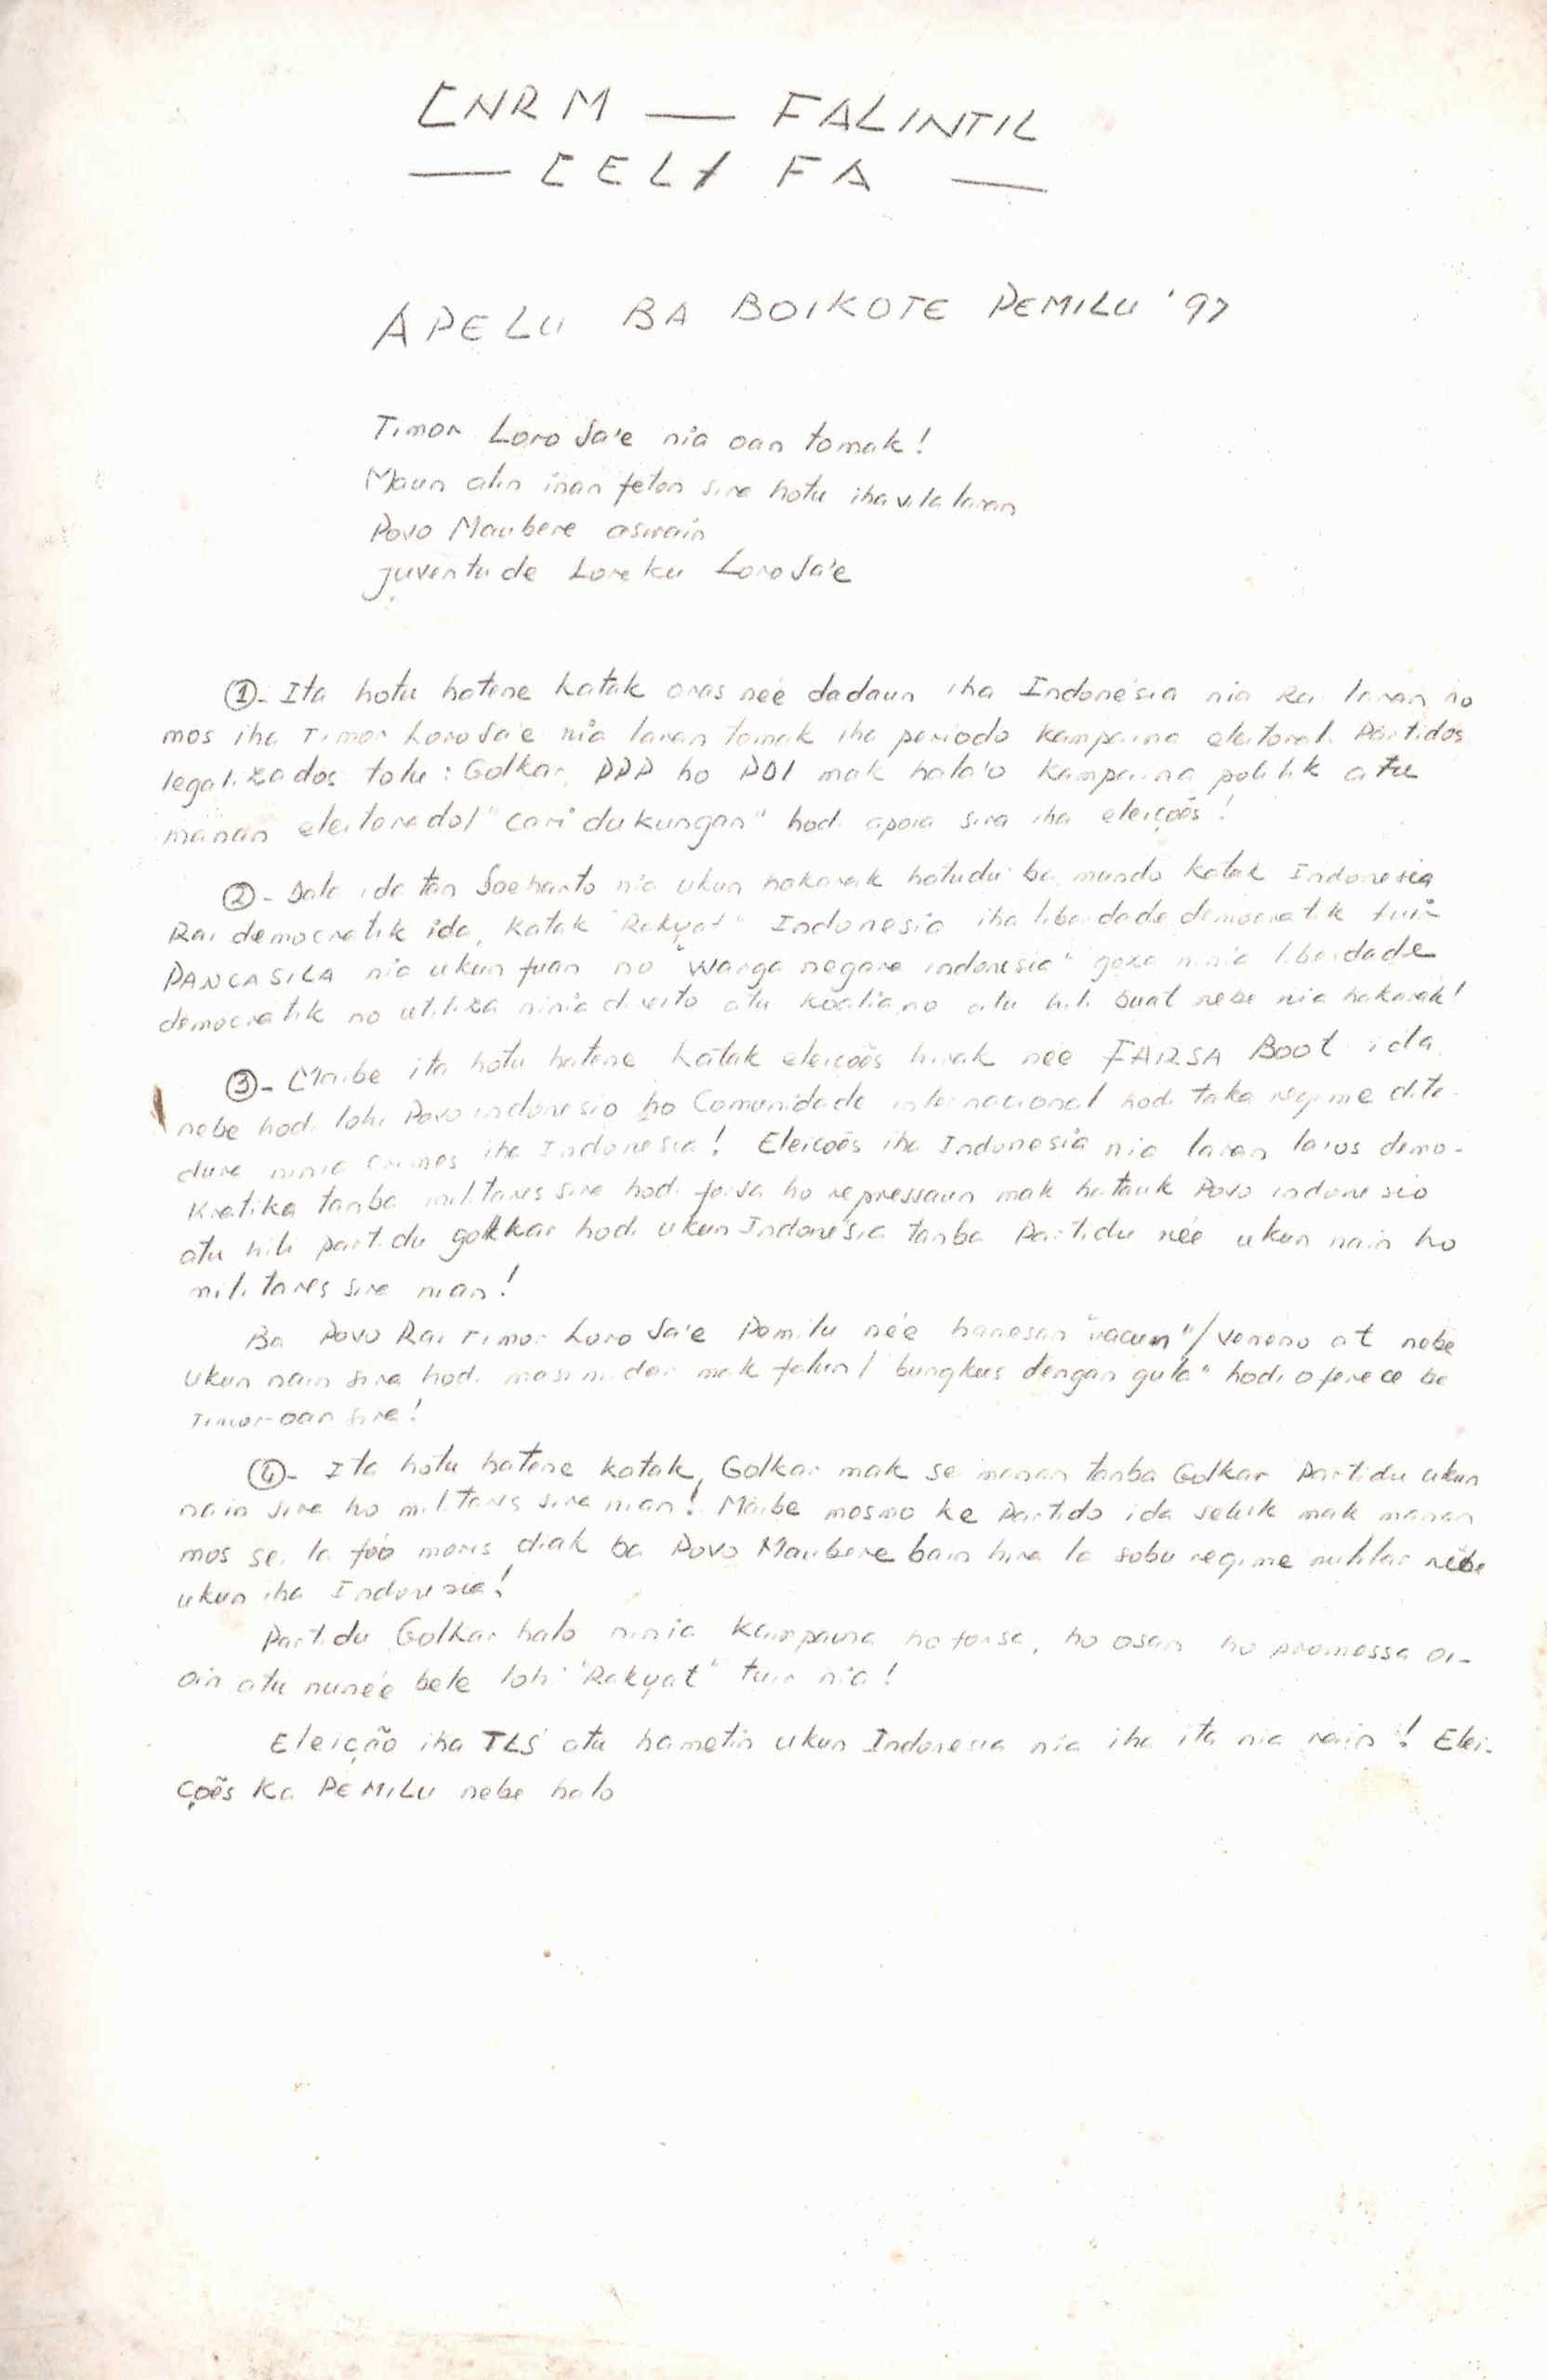 CNRM — FALINTIL
— CEL/FA —
APELU BA BOIKOTE PEMILU '97
Timor Loro Sa'e nia oan tomak!
Maun alin inan feton sira hotu iha vila laran
Povo Maubere aswain
juventude Loreku Loro Sa'e
① - Ita hotu hatene katak oras neé dadaun iha Indonésia nia Rai laran no
mos iha Timor Loro Sa'e nia laran tomak iha periodo kampaina eleitoral. Partidos
legalizados tolu : Golkar, PPP ho PDI mak hala'o kampaina politik atu
manan eleitorado/"cari dukungan" hodi apoia sira iha eleiçoẽs!
② - Dala ida tan Soeharto nia ukun hakarak hatudu ba mundo katak Indonesia
Rai democratik ida, katak "Rakyat" Indonesia iha liberdade democratik tuir
PANCASILA nia ukun fuan no "warga negara indonesia" goza ninia liberdade
democratik no utiliza ninia direito atu koalia no atu hili buat nebe nia hakarak!
③ - Maibe ita hotu hatene katak eleiçoẽs hirak neé FARSA Boot ida
nebe hodi lohi Povo indonesio ho Comunidade internacional hodi taka regime dita-
dura ninia crimes iha Indonesia! Eleiçoẽs iha Indonesia nia laran laios demo-
kratika tanba militares sira hodi forsa ho repressaun mak hatauk Povo indonesio
atu hili partidu golkar hodi ukun Indonésia tanba Partidu neé ukun nain ho
militares sira nian!
Ba Povo Rai Timor Loro Sa'e Pemilu né'e hanesan "racun"/veneno at nebe
ukun nain sira hodi masin midar mak falun/ bungkus dengan gula" hodi oferece ba
Timor-oan sira!
④ - Ita hotu hatene katak, Golkar mak sei manan tanba Golkar Partidu ukun
nain sira ho militares sira nian! Maibe mesmo ke Partido ida seluk mak manan
mos sei la foó moris diak ba Povo Maubere bain hira la sobu regime militar nebe
ukun iha Indonesia!
Partidu Golkar halo ninia kampaina ho forsa, ho osan ho promessa oi-
oin atu nune'e bele lohi "Rakyat" tuir nia!
Eleição iha TLS atu hametin ukun Indonesia nia iha ita nia rain! Elei-
çoẽs Ka PEMILU nebe halo